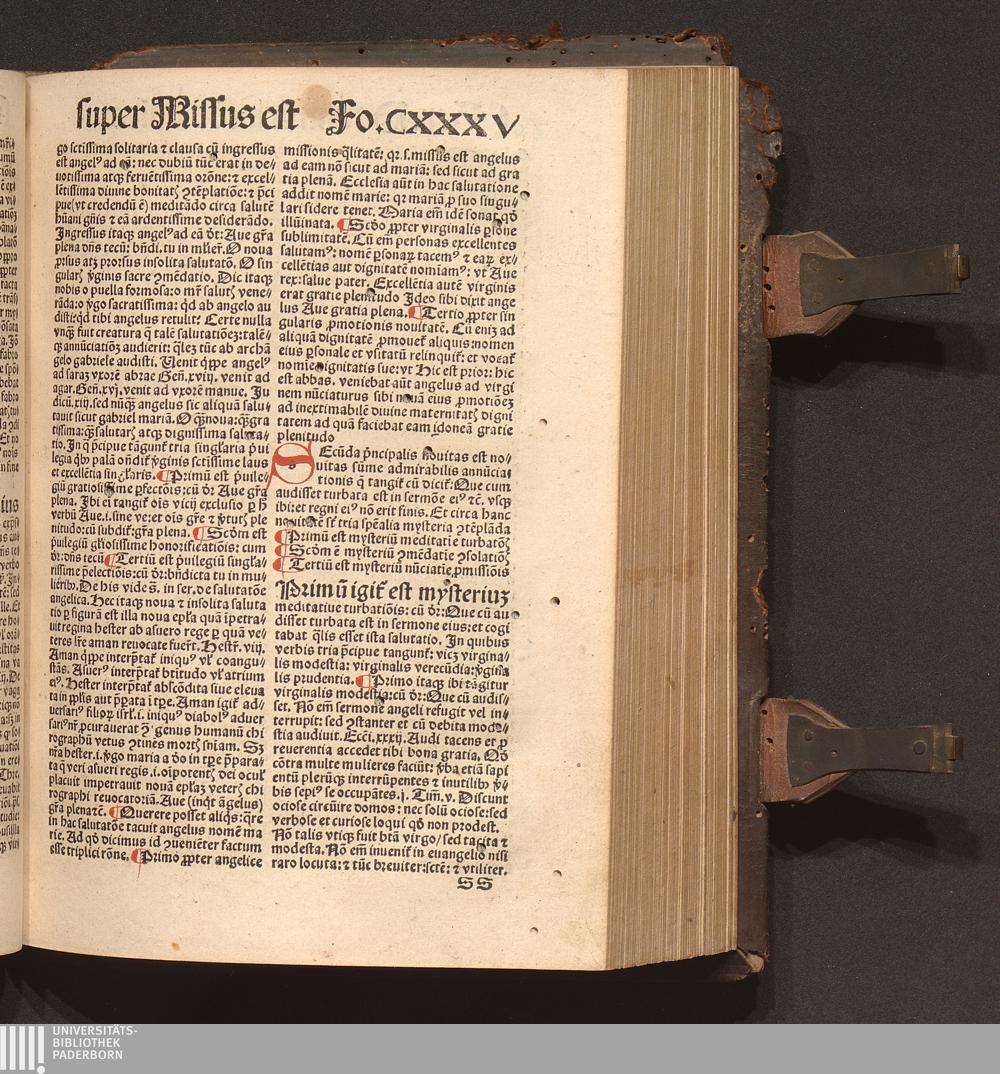 super Missus est Fo.CXXXV
go sctissima solitaria ⁊ clausa cū ingressus
est angelꝰ ad eā: nec dubiū tūc erat in de⸗
uotissima atqꝫ feruētissima orōne: ⁊ excel⸗
lētissima diuine bonitatꝭ ꝯtēplatiōe: ⁊ p̄ci
pue (vt credendū ē) meditādo circa salutē
hūani gn̄is ⁊ eā ardentissime desiderādo.
Ingressus itaqꝫ angelꝰ ad eā dt̄: Aue gr̄a
plena dn̄s tecū: bn̄di. tu in mlier̄. O noua
ꝓrsus atꝫ prorsus insolita salutatō. O sin
gularꝭ v̄ginis sacre ꝯmēdatio. Dic itaqꝫ
nobis o puella formosa: o mr̄ salutꝭ vene⸗
rāda: o v̄go sacratissima: qd ab angelo au
disti: qd tibi angelus retulit? Certe nulla
vnqꝫ fuit creatura q̄ talē salutatiōeꝫ: talē⸗
qꝫ annūciatiōꝫ audierit: q̄leꝫ tūc ab archā
gelo gabriele audisti. Uenit q̄ppe angelꝰ
ad saraꝫ vxorē abrae Gen̄.xviij. venit ad
agar. Gen̄.xvj. venit ad vxorē manue. Ju
dicū.xiij. sed nūqꝫ angelus sic aliquā salu⸗
tauit sicut gabriel mariā. O qꝫnoua: qꝫgra
tissima: qꝫ salutarꝭ atqꝫ dignissima saluta⸗
tio. In q̄ p̄cipue tāgunt̄ tria singl̄aria p̄ui
legia qbꝰ palā on̄dit̄ v̄ginis sctissime laus
et excellētia singl̄aris. ¶ Primū est p̄uile⸗
giū gratiosissime ꝑfectōis: cū dr̄ Aue gr̄a
plena. Ibi ei tangit̄ oīs vicij exclusio ꝑ h̄
verbū Aue.i. sine ve: et oīs gr̄e ⁊ v̄tutꝭ ple
nitudo: cū subdit̄: gr̄a plena. ¶ Scōm est
p̄uilegiū gl̄iosissime honorificatiōis: cum
dr̄: dn̄s tecū ¶ Tertiū est p̄uilegiū singl̄a⸗
rissime p̄electiōis: cū dr̄: bn̄dicta tu in mu⸗
lierib̄. De his vide s̄. in ser. de salutatōe
angelica. Hec itaqꝫ noua ⁊ insolita saluta
tio ꝑ figurā est illa noua epl̄a quā īpetra⸗
uit regina hester ab asuero rege ꝑ quā ve⸗
teres lr̄e aman reuocate fuer̄t. Hestr̄. viij.
Aman qppe interp̄tat̄ iniquꝰ vl̄ coangu⸗
stās. Asuerꝰ interp̄tat̄ btitudo vl̄ atrium
eiꝰ. Hester interp̄tat̄ abscōdita siue eleua
ta in ppl̄is aut p̄para ta ī tꝑe. Aman igit̄ ad⸗
uersariꝰ filioꝝ isrl̄.i. iniquꝰ diabolꝰ aduer
sariꝰ nr̄ ꝓcurauerat ꝯ̄ genus humanū chi
rographū vetus ꝯtinēs mortꝭ sniam. Sꝫ
nr̄a hester.i. v̄go maria a do in tꝑe p̄para⸗
ta q̄ veri asueri regis.i. oīpotentꝭ dei oculꝭ
placuit impetrauit nouā epl̄aꝫ veterꝭ chi
rographi reuocatoriā. Aue (inqt āgelus)
gr̄a plena ⁊c̄. ¶ Querere posset aliqs: qre
in hac salutatōe tacuit angelus nomē ma
rie. Ad qd̄ dicimus id ꝯuenieter factum
esse triplici rōne. ¶ Primo ꝓpter angelice
missionis q̄litatē: qꝛ.s. missus est angelus
ad eam nō sicut ad mariā: sed sicut ad gra
tia plenā. Ecclesia aūt in hac salutatione
addit nomē marie: qꝛ mariā ꝓ suo singu⸗
lari sidere tenet. Maria em̄ idē sonat qd̄
illūinata. ¶ Scdo ꝓpter virginalis ꝑsone
sublimitatē. Cū em̄ personas excellentes
salutamꝰ: nomē ꝑsonaꝝ tacemꝰ ⁊ eaꝝ ex⸗
cellētias aut dignitatē nomīamꝰ: vt Aue
rex: salue pater. Excellētia autē virginis
erat gratie plenitudo Ideo sibi dixit ange
lus Aue gratia plena. ¶ Tertio ꝓpter sin
gularis ꝓmotionis nouitatē. Cū eniꝫ ad
aliquā dignitatē ꝓmouet̄ aliquis: nomen
eius ꝑsonale et vsitatū relinquit̄: et vocat̄
nomine dignitatis sue: vt Hic est prior: hic
est abbas. veniebat aūt angelus ad virgi
nem nūciaturus sibi nouā eius ꝓmotiōeꝫ
ad inextimabilē diuine maternitatꝭ digni
tatem ad quā faciebat eam idoneā gratie
plenitudo
SEcūda p̄ncipalis nouitas est no⸗
uitas sūme admirabilis annūcia⸗
tionis q̄ tangit̄ cū dicit̄: Que cum
audisset turbata est in sermōe eiꝰ ⁊c̄. vsqꝫ
ibi: et regni eiꝰ nō erit finis. Et circa hanc
nouitatē st̄ tria sp̄ealia mysteria ꝯtēplāda
¶ Primū est mysteriū meditatie turbatōꝭ
¶ Scōm ē mysteriū ꝯmēdatie ꝯsolatiōꝭ
¶ Tertiū est mysteriū nūciatie ꝓmissiōis
Primū igit̄ est mysteriuꝫ
meditatiue turbatiōis: cū dr̄: Que cū au⸗
disset turbata est in sermone eius: et cogi
tabat q̄lis esset ista salutatio. In quibus
verbis tria p̄cipue tangunt̄: vicꝫ virgina⸗
lis modestia: virginalis verecūdia: v̄gina
lis prudentia. ¶ Primo itaqꝫ ibi tāgitur
virginalis modestia: cū dr̄: Que cū audis⸗
set. Nō em̄ sermonē angeli refugit vel in⸗
terrupit: sed ꝯstanter et cū debita mode⸗
stia audiuit. Ecci.xxxij. Audi tacens et ꝓ
reuerentia accedet tibi bona gratia. Qd̄
cōtra multe mulieres faciūt: v̄ba etiā sapi
entū plerūqꝫ interrūpentes ⁊ inutilibꝰ v̄⸗
bis sepiꝰ se occupātes.j. Tim.v. Discunt
ociose circūire domos: nec solū ociose: sed
verbose et curiose loqui qd̄ non prodest.
Nō talis vtiqꝫ fuit btā virgo/ sed tacita ⁊
modesta. Nō em̄ inuenit̄ in euangelio nisi
raro locuta: ⁊ tūc breuiter: sctē: ⁊ vtiliter.
SS
UNIVERSITÄTS-
BIBLIOTHEK
PADERBORN